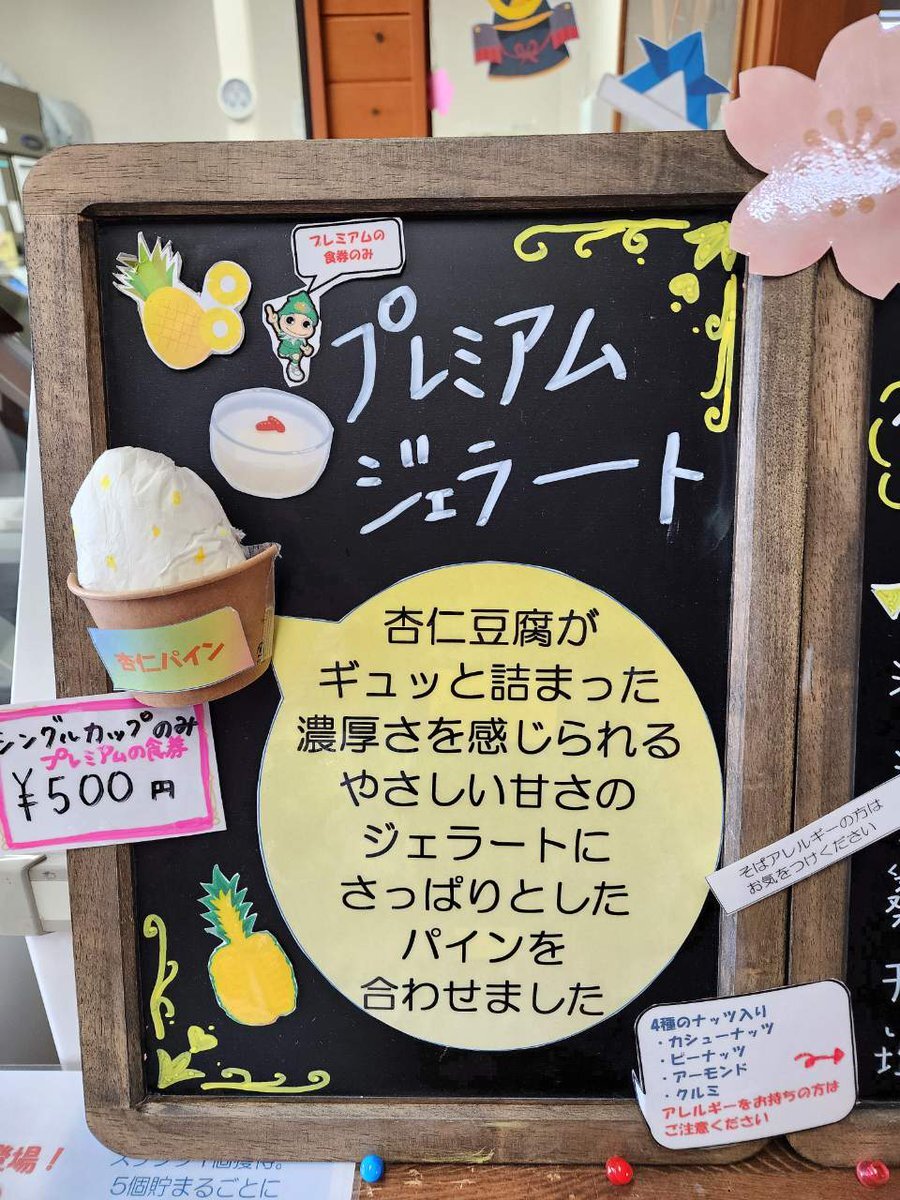 プレミアムの
食券のみ
プレミアム
ジェラート
杏仁パイン
シングルカップのみ
プレミアムの食券
¥500円
杏仁豆腐が
ギュッと詰まった
濃厚さを感じられる
やさしい甘さの
ジェラートに
さっぱりとした
パインを
合わせました
そばアレルギーの方は
お気をつけください
4種のナッツ入り
・カシューナッツ
・ピーナッツ
・アーモンド
・クルミ
アレルギーをお持ちの方は
ご注意ください
登場！
5個貯まるごとに